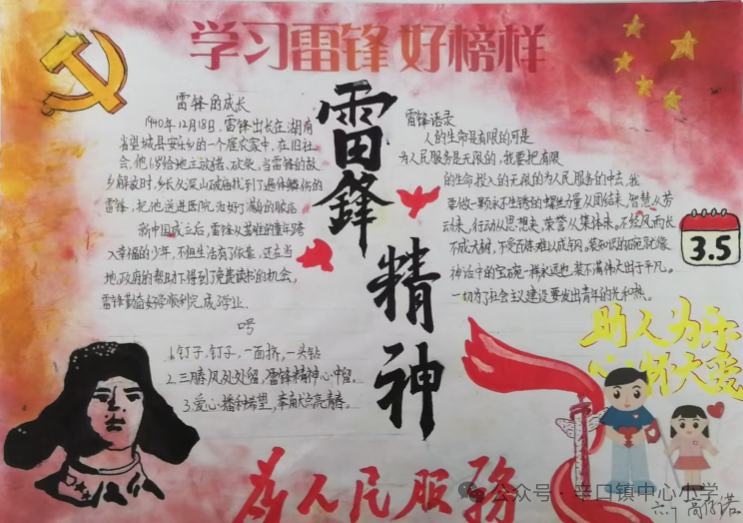 学习雷锋 好榜样
雷锋精神
雷锋的成长
1940年12月18日,雷锋出长在湖南
省望城县安庆乡的一个雇农家中,在旧社
会,他6岁给地主放猪、砍柴,当雷锋的故
乡解放时,乡长从深山破庙找到了遍体鳞伤的
雷锋,把他送进医院治好了满身的脓疮
新中国成立后,雷锋从苦难的童年跨
入幸福的少年,不但生活有了依靠,还在当
地政府的帮助下得到了免费读书的机会,
雷锋勤奋好学顺利完成了学业.
口号
1.钉子,钉子,一面挤,一头钻
2.三月春风处处留,雷锋精神心中留。
3.爱心播种希望,奉献点亮青春。
雷锋语录
人的生命是有限的可是
为人民服务是无限的,我要把有限
的生命投入的无限的为人民服务的中去,我
要做一颗永不生锈的螺丝力量从团结来,智慧从劳
动来,行动从思想来,荣誉从集体来,不经风雨长
不成大树,不受百炼难以成钢,装知识的碗就像
神话中的宝碗一样永远也装不满伟大出于平凡。
一切为了社会主义建设要发出青年的光和热。
3.5
助人为乐
心怀大爱
为人民服务
公众号·辛口镇中心小学
六.1